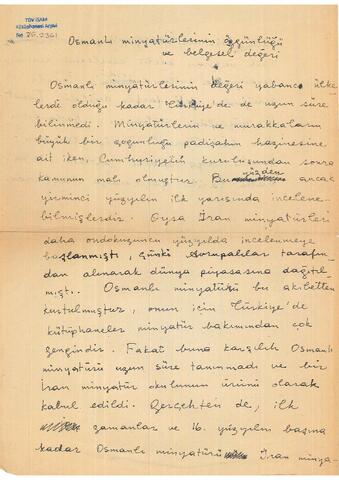 TDV İSAM
Kütüphanesi Arşivi
No
Osmanlı minyatürlerinin özgünlüğü
ve belgesel değeri
Osmanlı minyatürlerinin değeri yabancı ülke
lerde olduğu kadar Türkiye'de de uzun süre
bilinmedi. Minyatürlerin ve murakkaların
büyük bir çoğunluğu padişahın hazinesine
ait iken, Cumhuriyetin kuruluşundan sonra
kamunun malı olmuştur. Bu yüzden ancak
yirminci yüzyılın ilk yarısında incelene-
bilmişlerdir. Oysa İran minyatürleri
daha ondokuzuncu yüzyılda incelenmeye
başlanmıştı, çünkü Avrupalılar tarafın-
dan alınarak dünya piyasasına dağıtıl
mıştı. Osmanlı minyatürü bu akibetten
kurtulmuştur, onun için Türkiye'de
kütüphaneler minyatür bakımından çok
zengindir. Fakat buna karşılık Osmanlı
minyatürü uzun süre tanınmadı ve bir
İran minyatür okulunun ürünü olarak
kabul edildi. Gerçekten de, ilk
zamanlar ve 16. yüzyılın başına
kadar Osmanlı minyatürü İran minya-